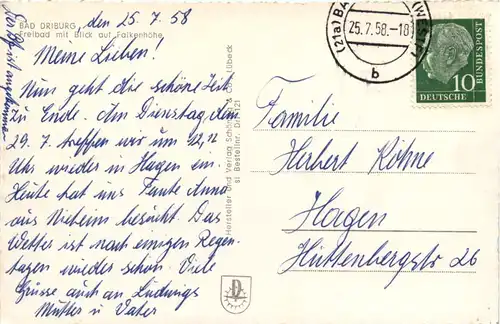 BAD DRIBURG
Freibad mit Blick auf Falkenhöhe
den 25.7.58
Meine Lieben!
Nun geht die schöne Zeit
zu Ende. Am Dienstag, dem
29.7. treffen wir um 12,12
Uhr wieder in Hagen ein.
Heute hat uns Tante Anna
aus Nieheim besucht. Das
Wetter ist nach einigen Regen-
tagen wieder schön. Viele
Grüsse auch an Ludwigs
Mutter u Vater
ist angekommen
Hersteller und Verlag Schöning & Co Lübeck
Bestellnr. Dri 121
(21a) BA
25.7.58.-18
(WESTF)
b
10
DEUTSCHE BUNDESPOST
Familie
Herbert Köhne
Hagen
Hüttenbergstr 26